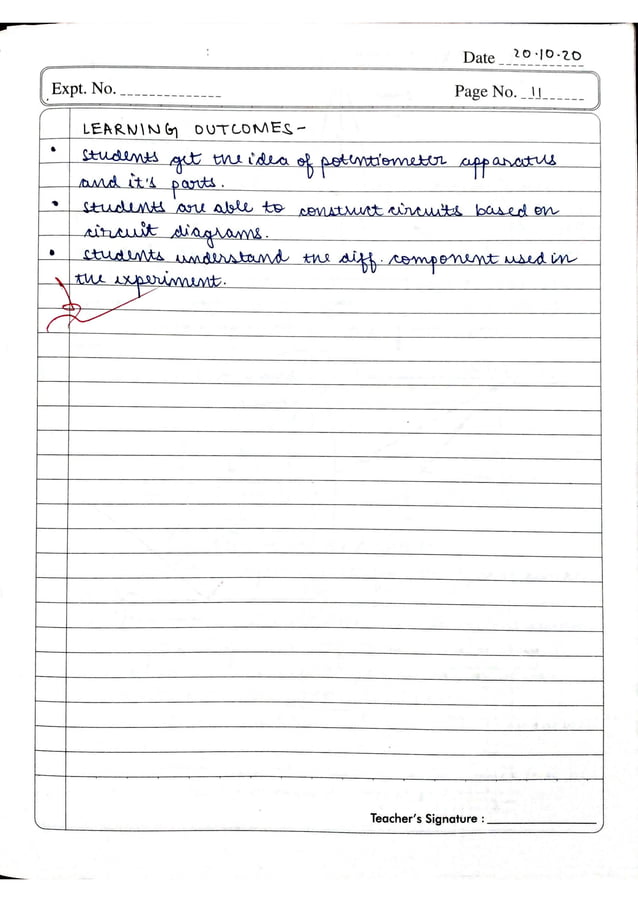 Date 20.10.20
Expt. No.
Page No. 11
LEARNING OUTCOMES-
• students get the idea of potentiometer apparatus
and it's parts.
• students are able to construct circuits based on
circuit diagrams.
• students understand the diff. component used in
the experiment.
Teacher's Signature :